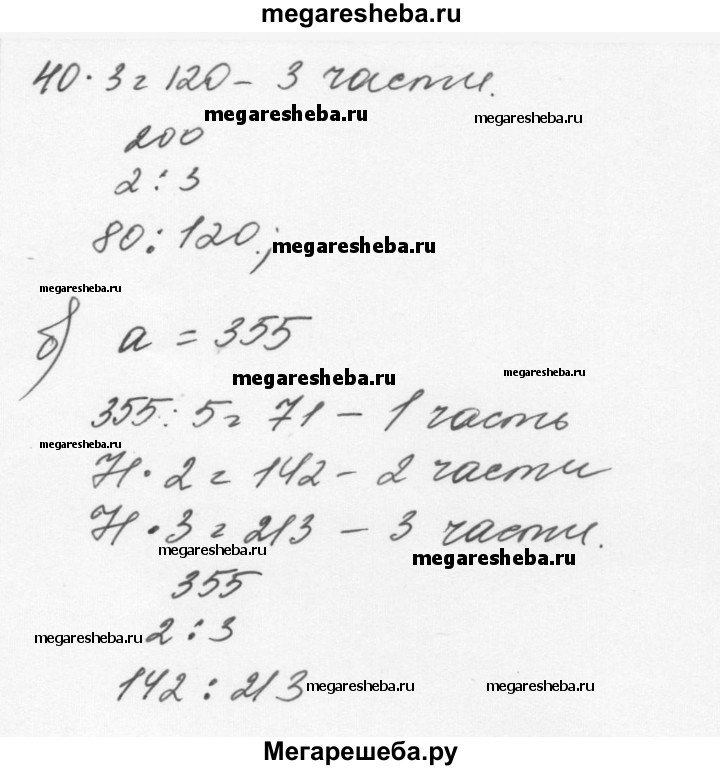 megaresheba.ru
40 · 3 = 120 - 3 части.
megaresheba.ru
megaresheba.ru
200
2 : 3
80 : 120;
megaresheba.ru
megaresheba.ru
б) a = 355
megaresheba.ru
megaresheba.ru
355 : 5 = 71 - 1 часть
megaresheba.ru
71 · 2 = 142 - 2 части
71 · 3 = 213 - 3 части.
megaresheba.ru
megaresheba.ru
355
megaresheba.ru
2 : 3
142 : 213
megaresheba.ru
megaresheba.ru
Мегарешеба.ру